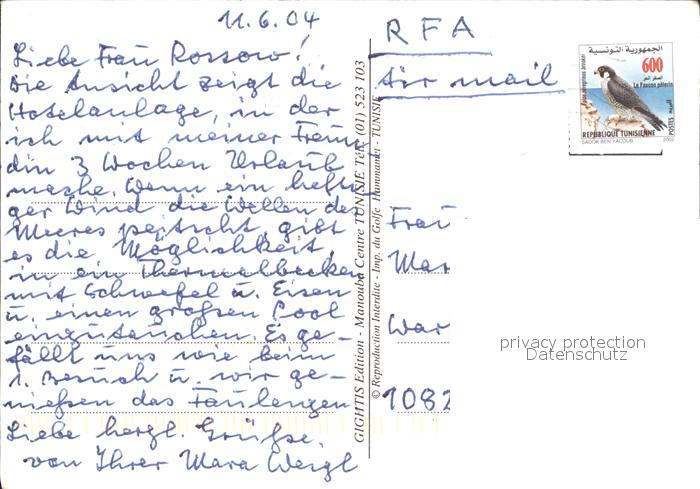 11.6.04
Liebe Frau Rossow!
Die Ansicht zeigt die
Hotelanlage, in der
ich mit meiner Freun
din 3 Wochen Urlaub
mache. Wenn ein hefti
ger Wind die Wellen des
Meeres peitscht, gibt
es die Möglichkeit,
in ein Thermalbecken
mit Schwefel u. Eisen
u. einen großen Pool
einzutauchen. Es ge-
fällt uns wie beim
1. Besuch u. wir ge-
nießen das Faulenzen
Liebe herzl. Grüße
von Ihrer Mara Weigl
GIGHTIS Edition - Manouba Centre TUNISIE Tél: (01) 523 103
© Reproduction Interdite - Imp. du Golfe - Hammamet - TUNISIE
RFA
Air mail
الجمهورية التونسية
600
Le Faucon pèlerin
REPUBLIQUE TUNISIENNE
POSTES
SADOK BEN YACOUB
2002
Frau
Mar
War
1082
privacy protection
Datenschutz